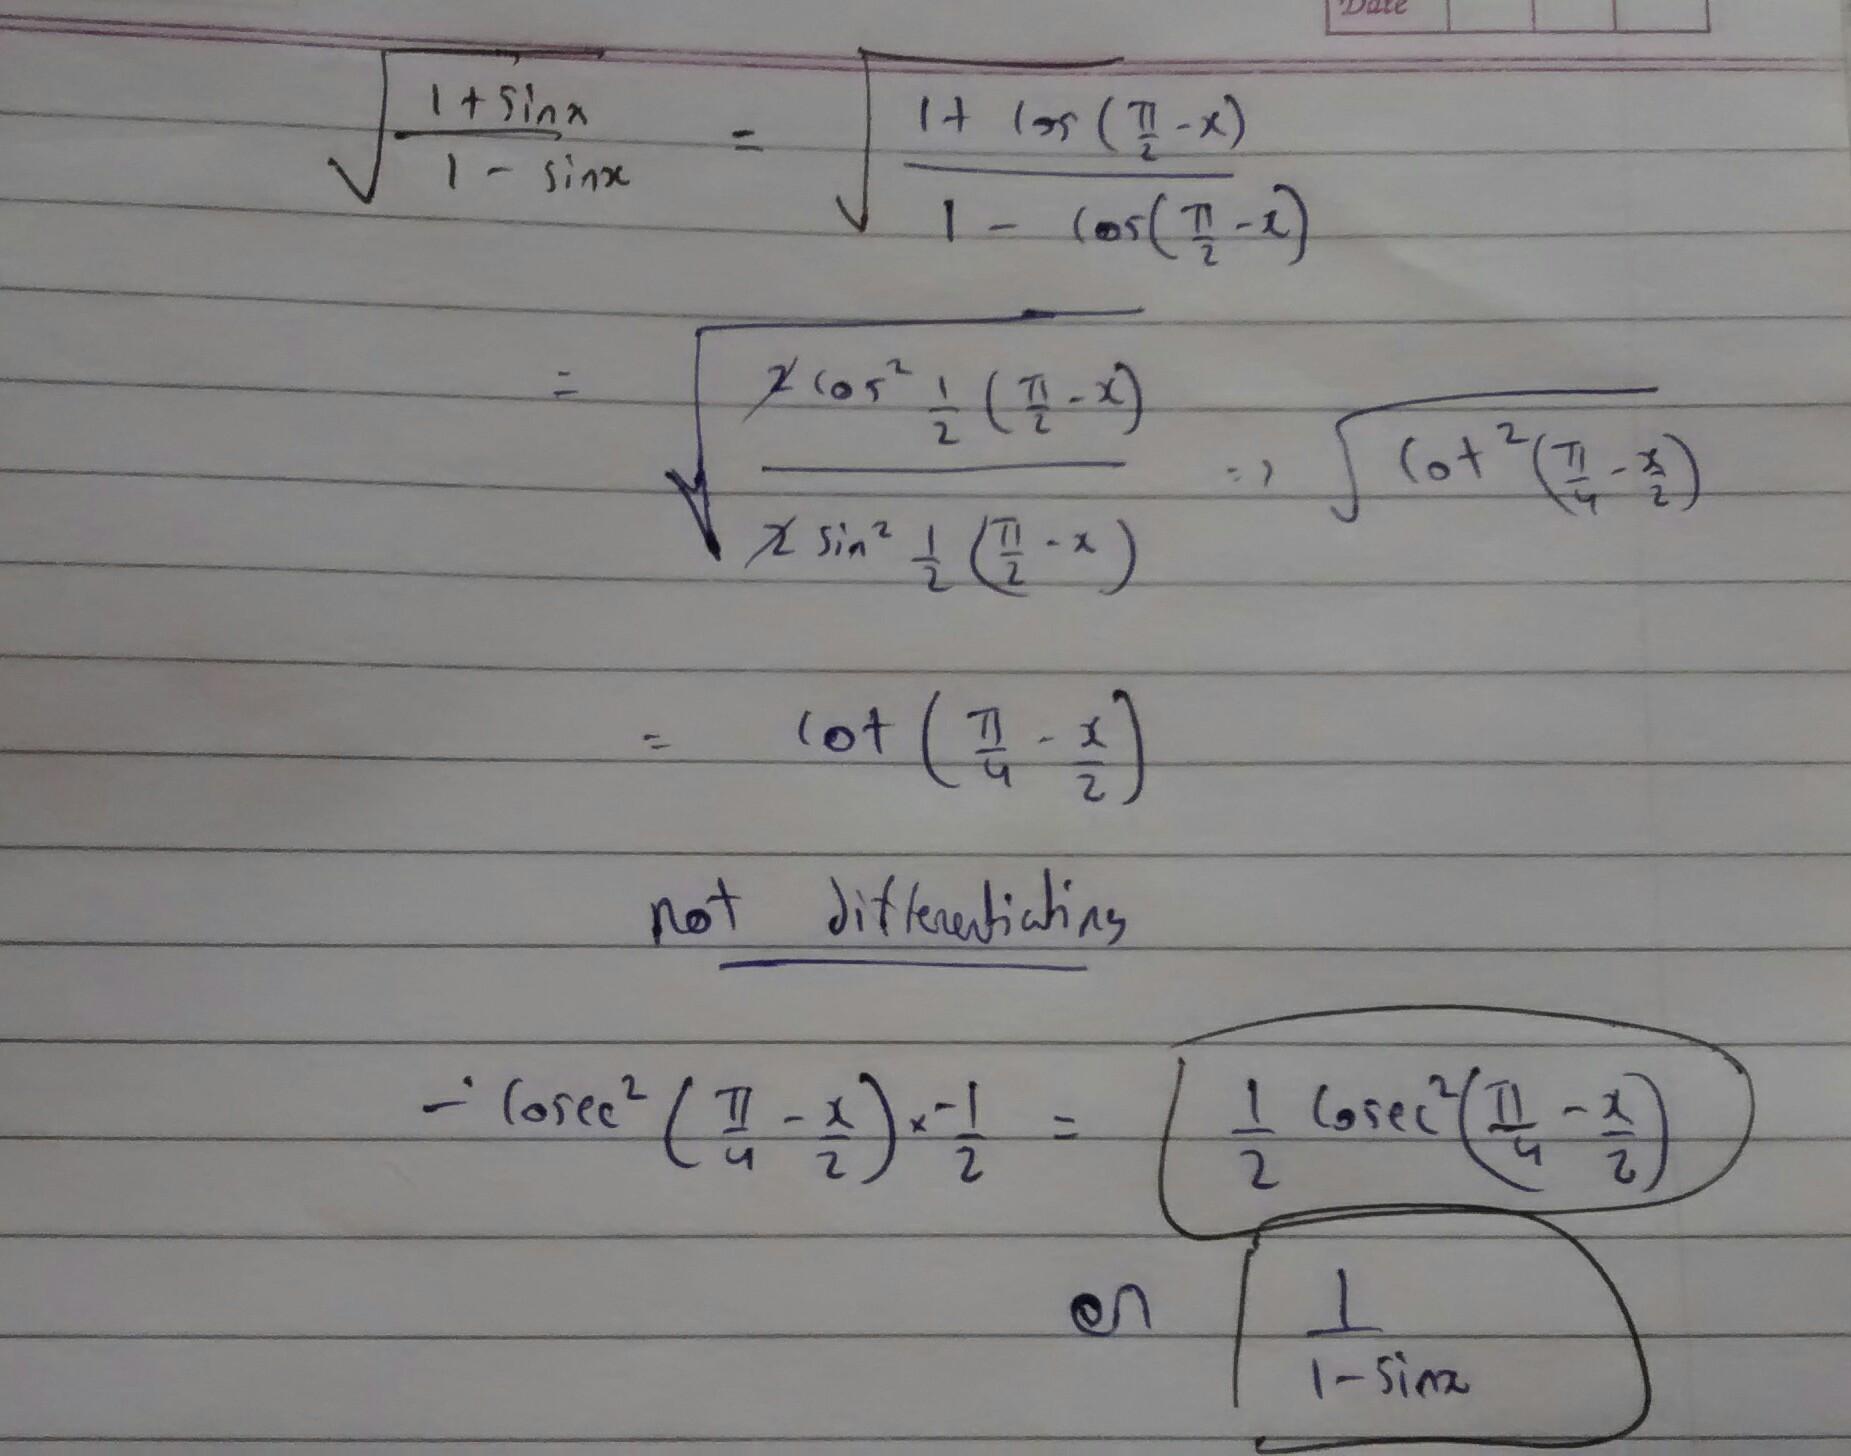 Date
√((1+sinx)/(1-sinx)) = √((1+cos(π/2-x))/(1-cos(π/2-x)))
= √((2cos² 1/2(π/2-x))/(2sin² 1/2(π/2-x))) => √(cot²(π/4-x/2))
= cot(π/4-x/2)
not differentiating
-cosec²(π/4-x/2)×-1/2 = 1/2 cosec²(π/4-x/2)
or 1/(1-sinx)